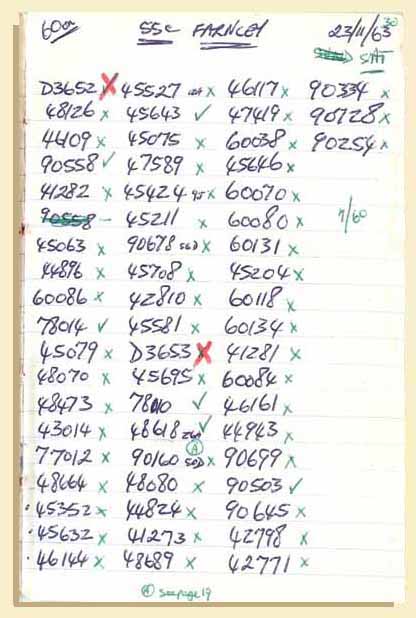 60A 55C FARNLEY 23/11/63 30
SAT
D3652 X 45527 x 46117 x 90334 x
48126 x 45643 ✓ 47419 x 90728 x
44109 x 45075 x 60038 x 90254 x
90558 ✓ 47589 x 45646 x
41282 x 45424 x 60070 x
90558 – 45211 x 60080 x 7/60
45063 x 90678 56D x 60131 x
44896 x 45708 x 45204 x
60086 x 42810 x 60118 x
78014 ✓ 45581 x 60134 x
45079 x D3653 X 41281 x
48070 x 45695 x 60084 x
48473 x 78010 ✓ 46161 x
43014 x 48618 ✓ 44943 x
77012 x 90160 50D x 90699 x
48664 x 48080 x 90503 ✓
45352 x 44824 x 90645 x
45632 x 41273 x 42798 x
46144 x 48689 x 42771 x
Ⓐ see page 19